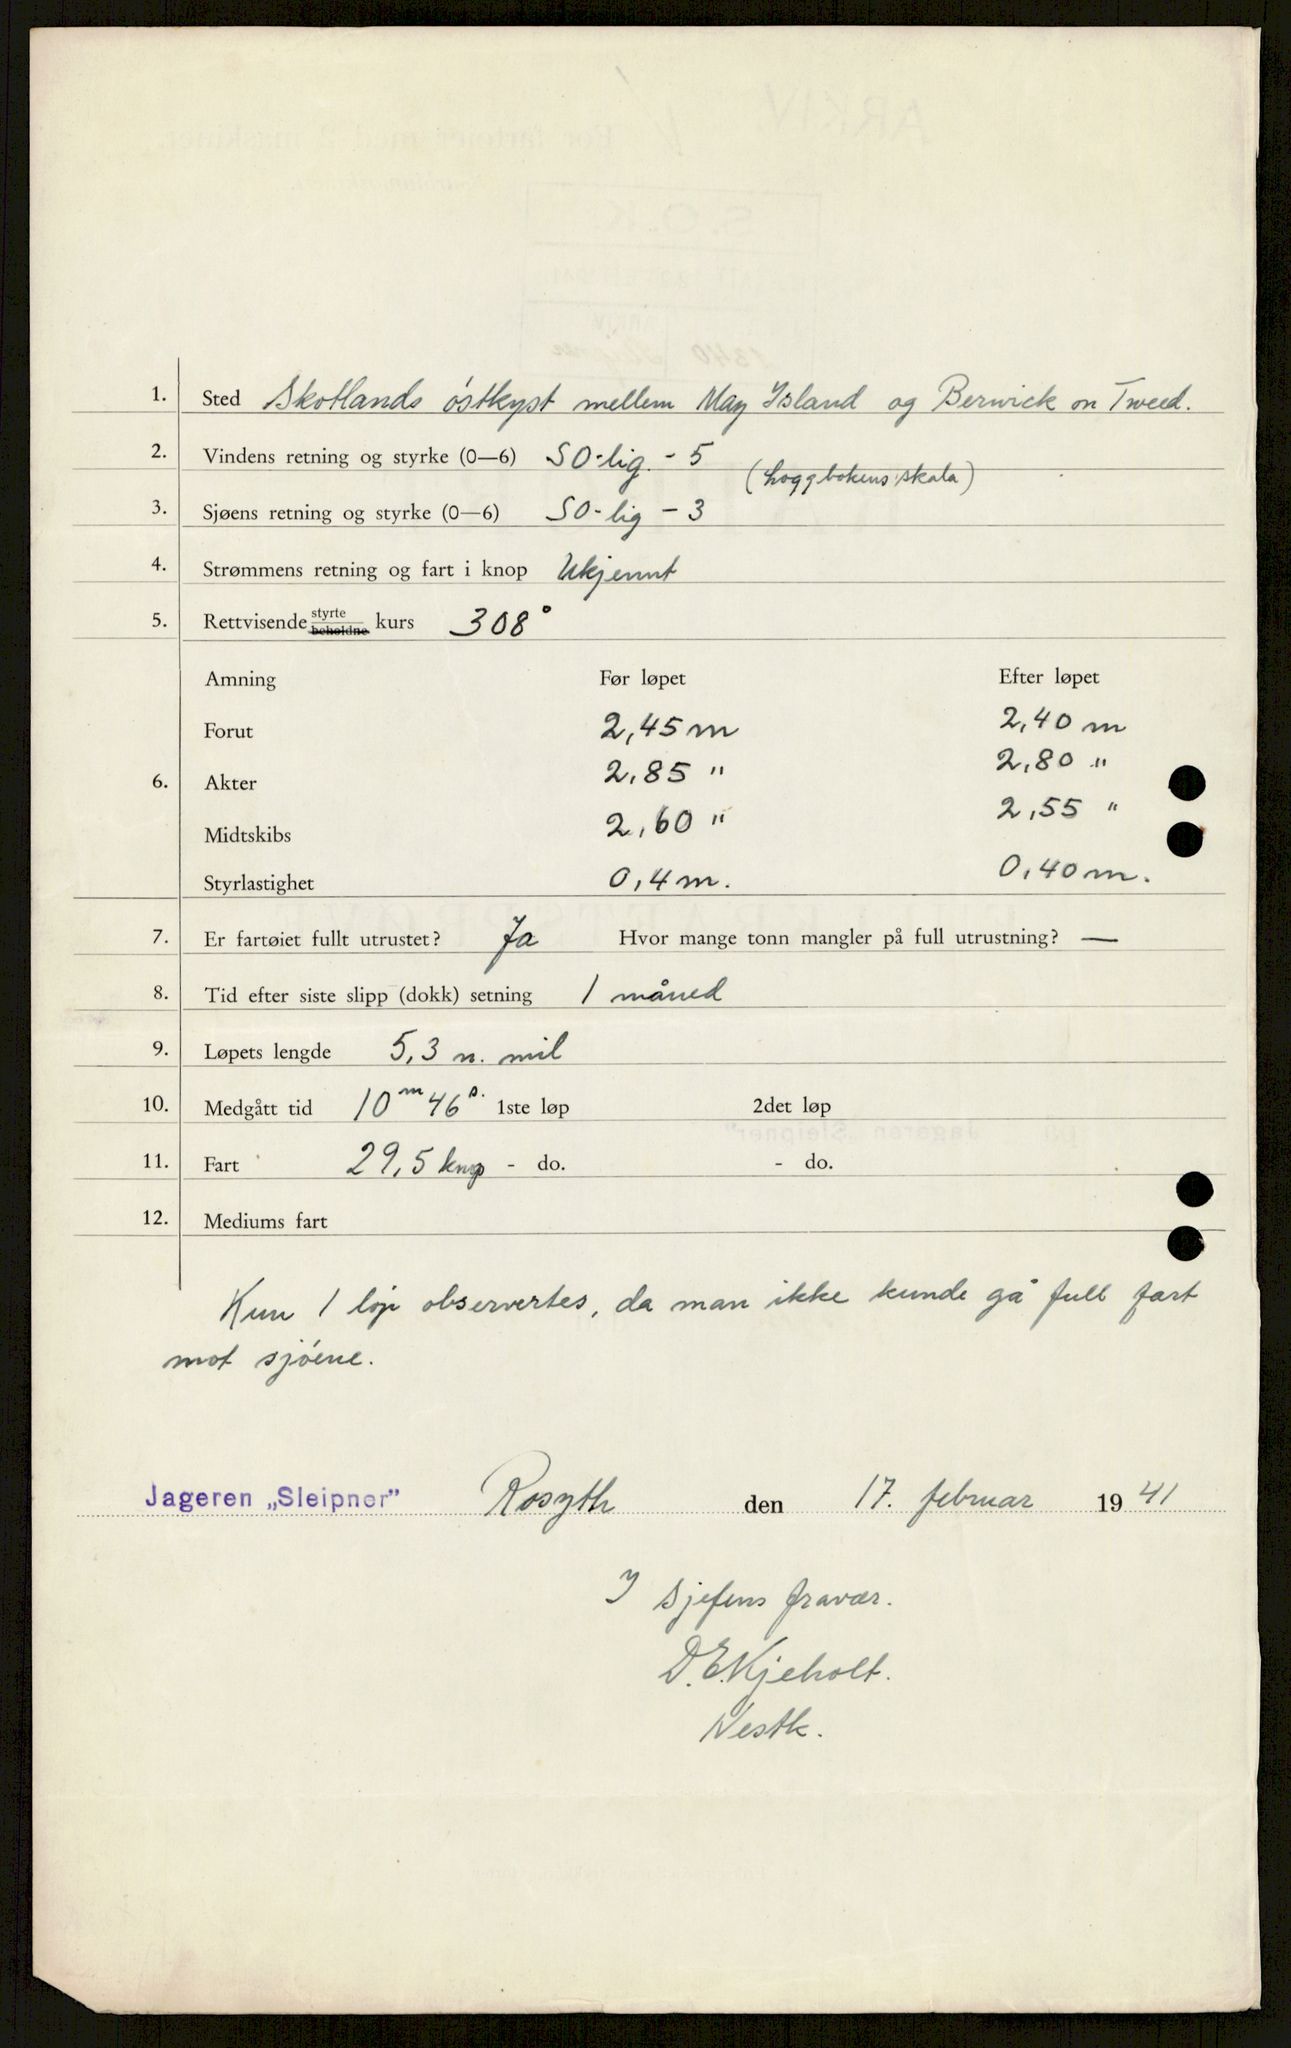 1. Sted Skotlands östkyst mellem May Island og Berwick on Tweed.
2. Vindens retning og styrke (0—6) SO-lig. - 5
(Loggbokens skala)
3. Sjøens retning og styrke (0—6) SO-lig - 3
4. Strømmens retning og fart i knop Ukjennt
5. Rettvisende styrte beholdne kurs 308°
Amning Før løpet Efter løpet
Forut 2,45 m 2,40 m
6. Akter 2,85 " 2,80 "
Midtskibs 2,60 " 2,55 "
Styrlastighet 0,4 m. 0,40 m.
7. Er fartøiet fullt utrustet? Ja Hvor mange tonn mangler på full utrustning? —
8. Tid efter siste slipp (dokk) setning 1 måned
9. Løpets lengde 5,3 n. mil
10. Medgått tid 10m 46s. 1ste løp 2det løp
11. Fart 29,5 knop - do. - do.
12. Mediums fart
Kun 1 löp observertes, da man ikke kunde gå full fart
mot sjöene.
Jageren „Sleipner" Rosyth den 17. februar 1941
I sjefens fravær.
D. E. Kjeholt.
Nestk.